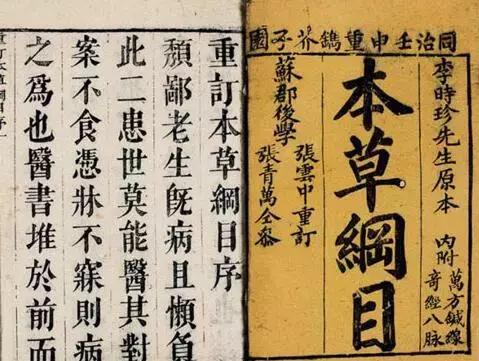 同治壬申重鐫芥子園
李時珍先生原本 內附 萬方鍼線
奇經八脉
本草綱目
蘇郡後學
張雲中重訂
張青萬仝參
重訂本草綱目序
頽鄙老生旣病且懶負
此二患世莫能醫其對
案不食憑牀不寐則病
之爲也醫書堆於前而